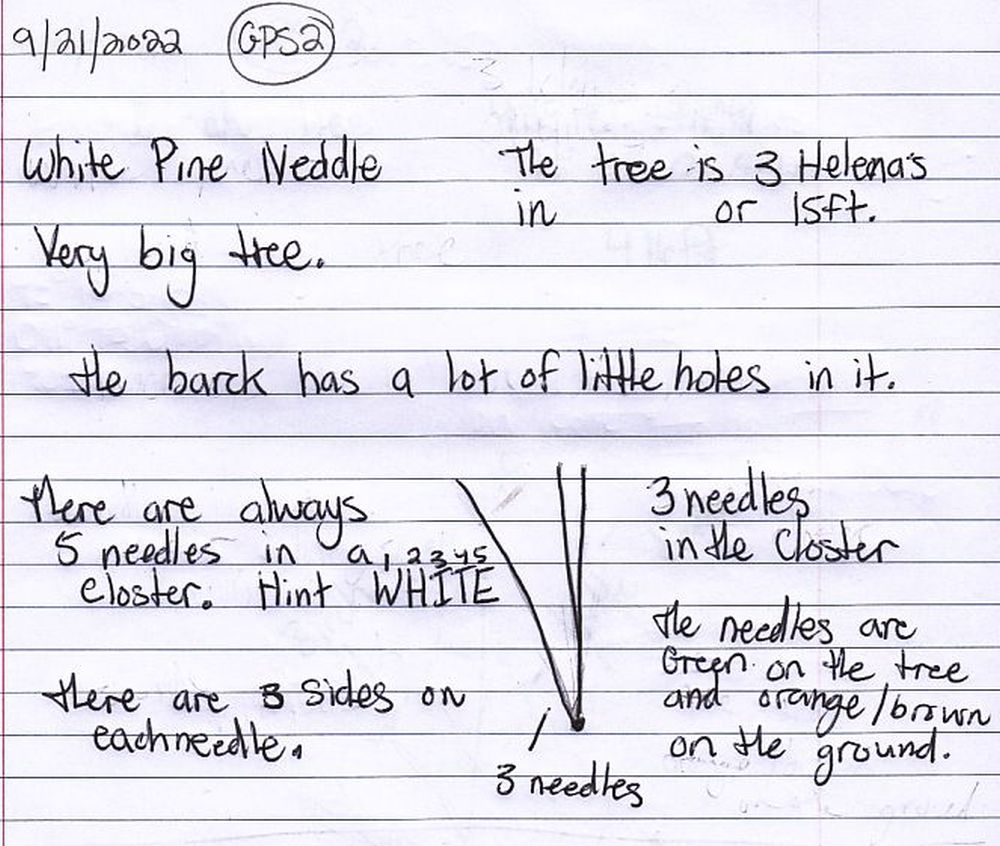 9/21/2022 GPS2
White Pine Neddle
Very big tree.
The tree is 3 Helena's
in or 15ft.
the barck has a lot of little holes in it.
there are always
5 needles in a 1 2 3 4 5
closter. Hint WHITE
there are 3 sides on
each needle.
3 needles
3 needles
in the Closter
the needles are
Green on the tree
and orange/brown
on the ground.